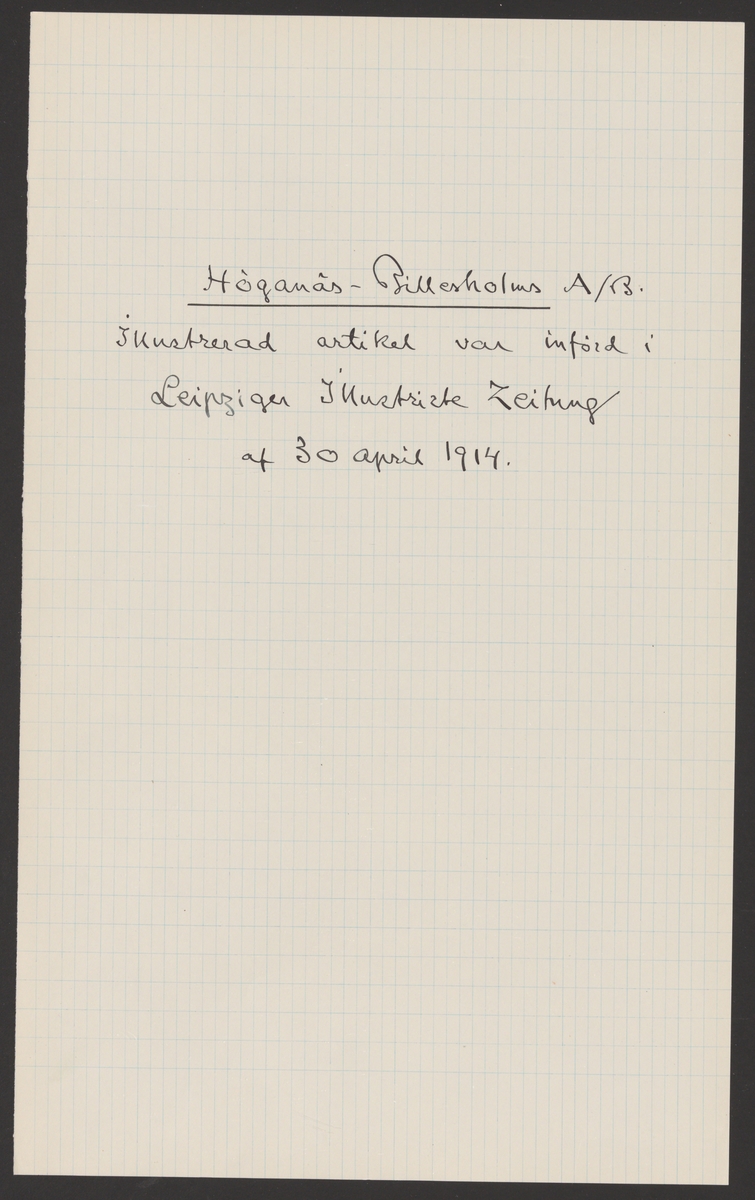 Höganäs-Billesholms A/B.
Illustrerad artikel var införd i
Leipziger Illustrirte Zeitung
af 30 april 1914.